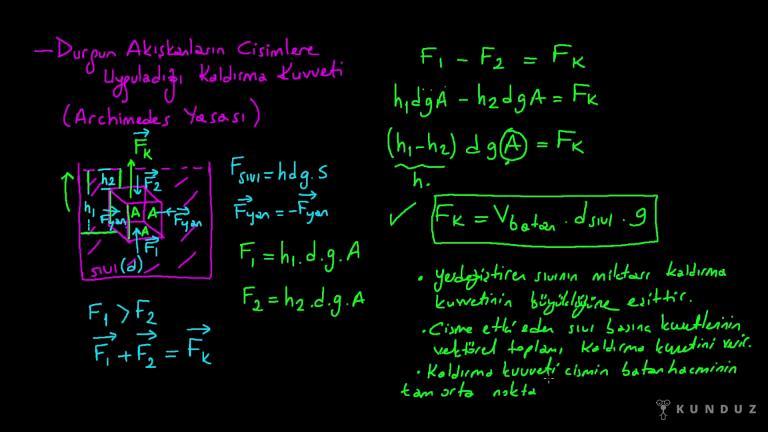 — Durgun Akışkanların Cisimlere
Uyguladığı Kaldırma Kuvveti
(Archimedes Yasası)
F⃗K
h2
F⃗2
h1
F⃗yan
A A
A
F⃗yan
F⃗1
sıvı (d)
F1 > F2
F⃗1 + F⃗2 = F⃗K
Fsıvı = hdg.s
F⃗yan = -F⃗yan
F1 = h1.d.g.A
F2 = h2.d.g.A
F1 - F2 = FK
h1dgA - h2dgA = FK
(h1-h2) dgA = FK
h.
✓ FK = Vbatan . dsıvı . g
• Yerdeğiştiren sıvının miktarı kaldırma
kuvvetinin büyüklüğüne eşittir.
• Cisme etki eden sıvı basınç kuvvetlerinin
vektörel toplamı, kaldırma kuvvetini verir.
• Kaldırma kuvveti cismin batan hacminin
tam orta nokta
KUNDUZ